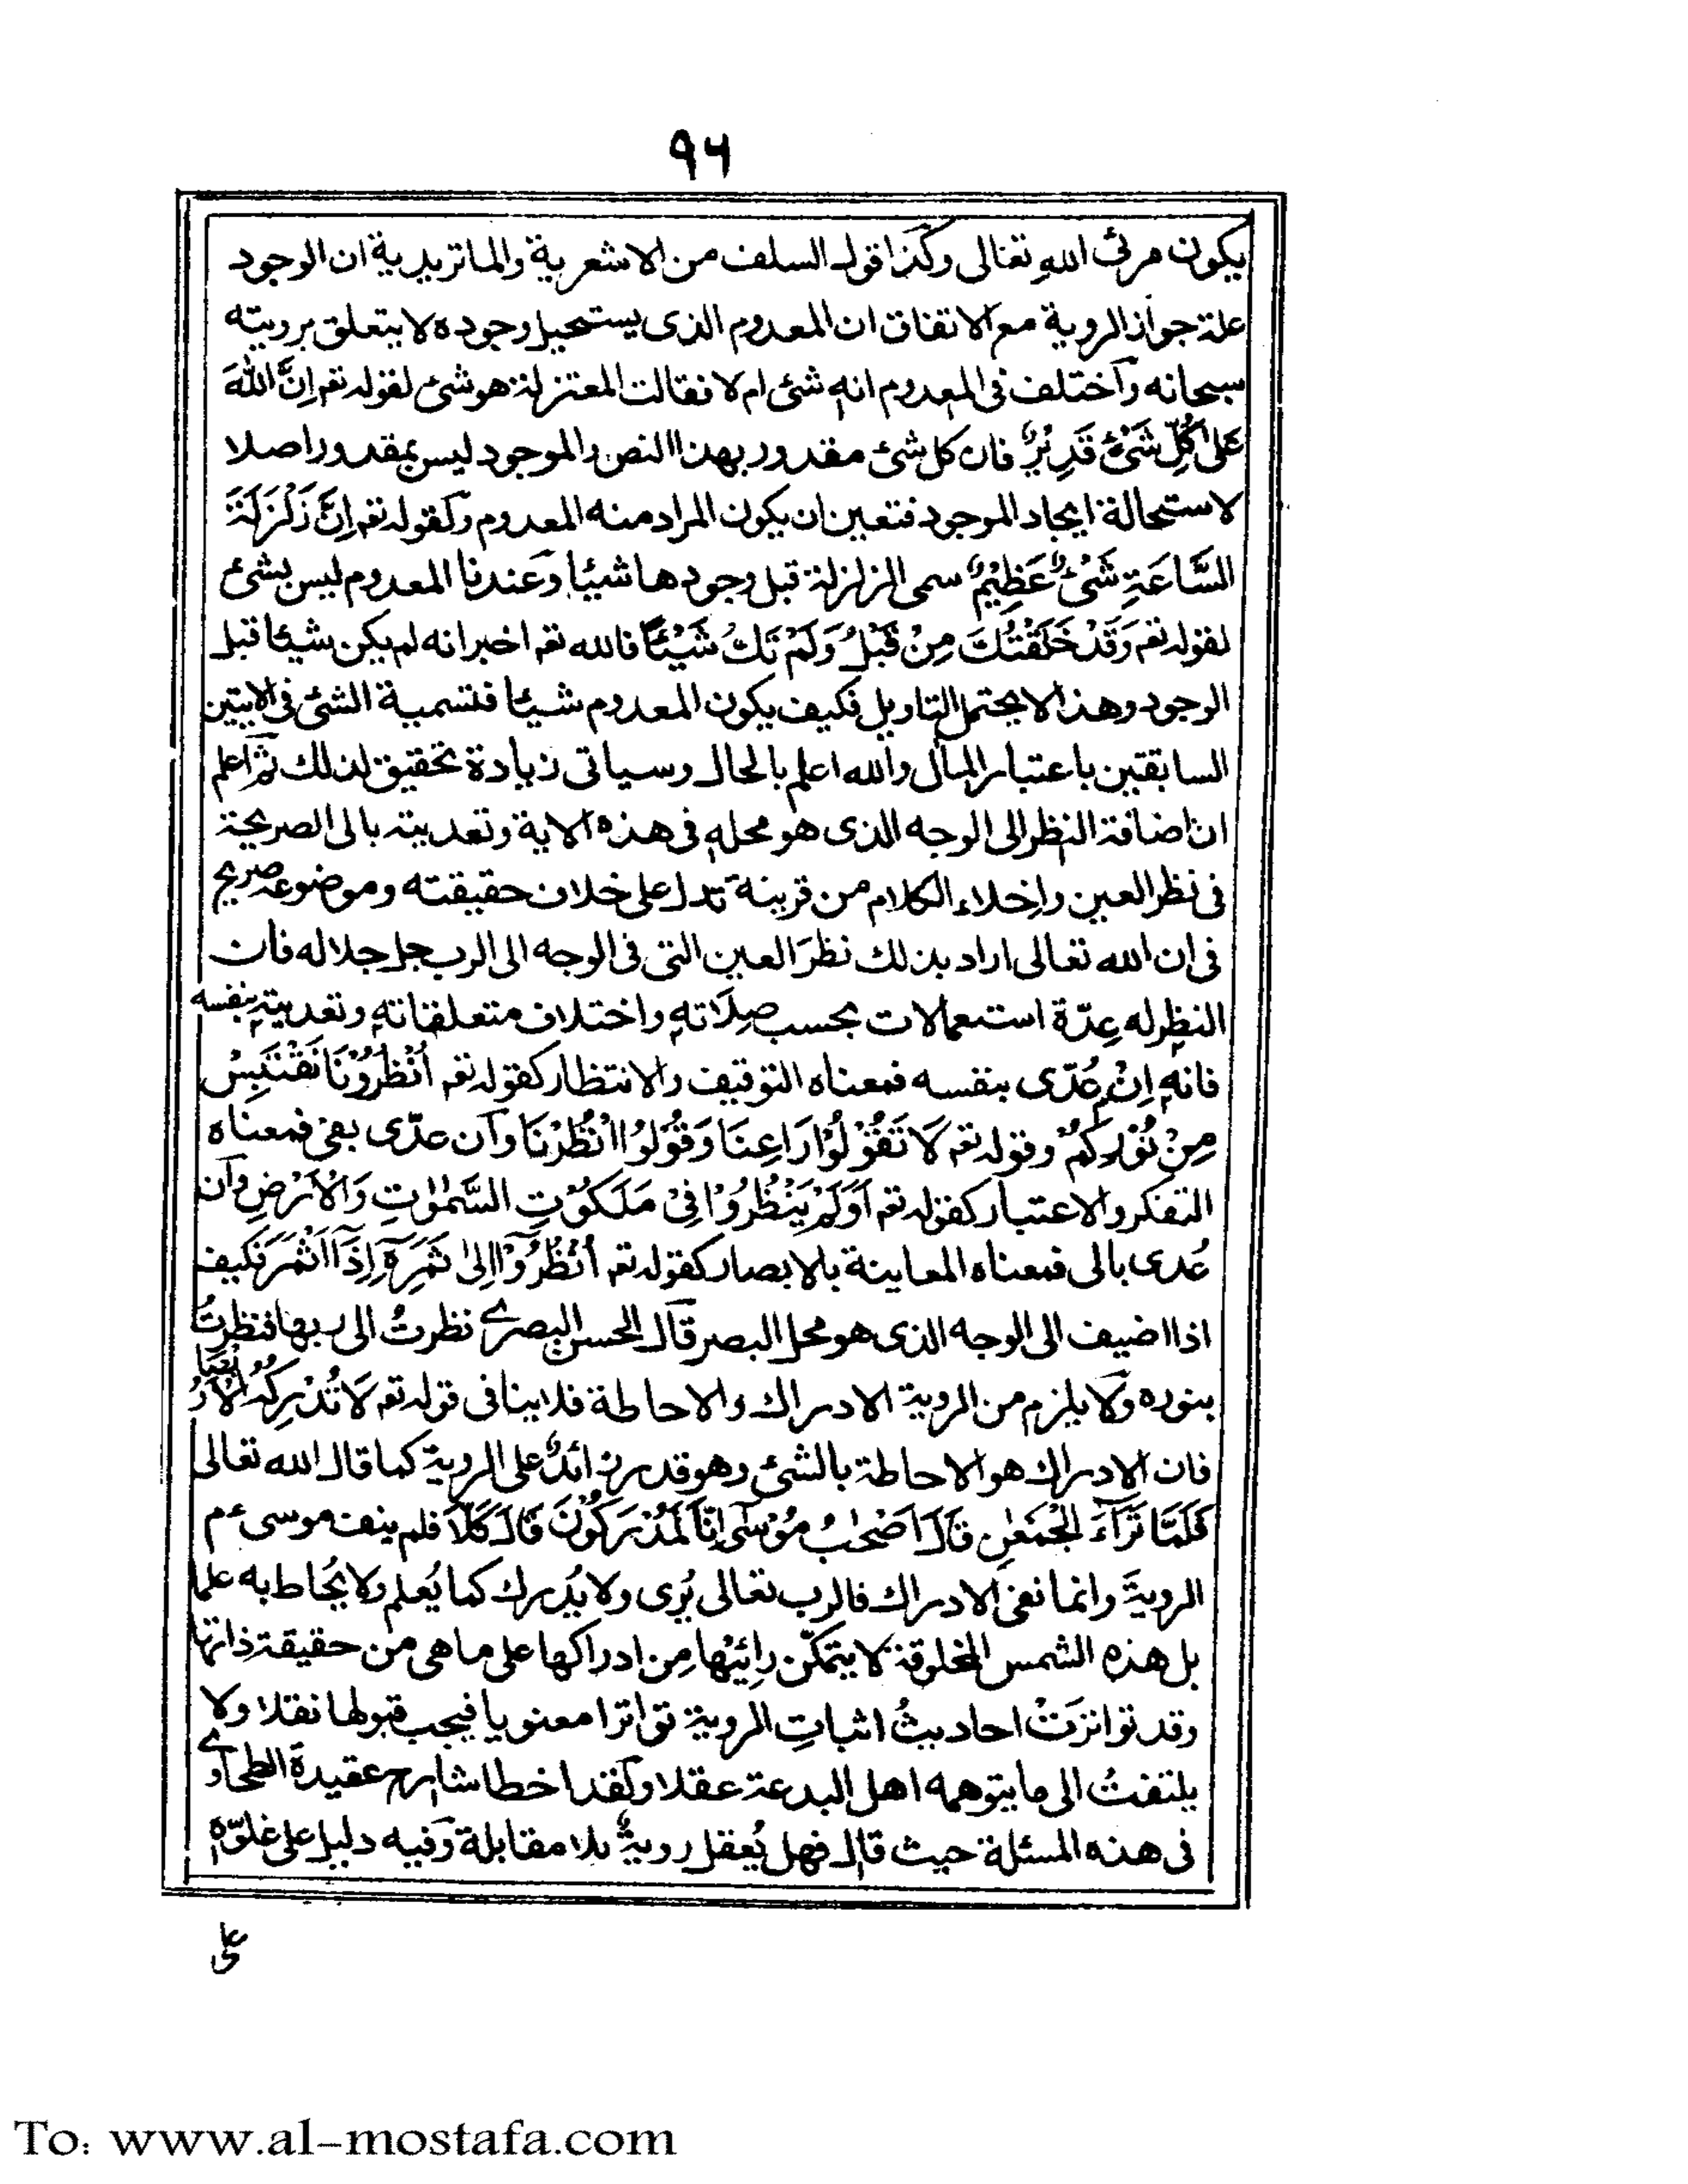 ٩٦
يكون مرئ اللهِ تعالى وكذا قول السلف من الاشعرية والماتريدية ان الوجود
علة جواز الروية مع الاتفاق ان المعدوم الذى يستحيل وجوده لا يتعلق برويته
سبحانه وآختلف فى المعدوم انه شئ ام لا فقالت المعتزلة هو شئ لقوله تعم اِنَّ اللّٰهَ
عَلٰى كُلِّ شَىْءٍ قَدِيْرٌ فان كل شئ مقدور بهذا النص والموجود ليس بمقدور اصلا
لاستحالة ايجاد الموجود فتعين ان يكون المراد منه المعدوم وكقوله تعم اِنَّ زَلْزَلَةَ
السَّاعَةِ شَىْءٌ عَظِيْمٌ سمى الزلزلة قبل وجودها شيئا وعندنا المعدوم ليس بشئ
لقوله تعم وَقَدْ خَلَقْتُكَ مِنْ قَبْلُ وَلَمْ تَكُ شَيْئًا فالله تعم اخبر انه لم يكن شيئا قبل
الوجود وهذا لا يحتمل التاويل فكيف يكون المعدوم شيئا فتسمية الشئ فى الايتين
السابقتين باعتبار المآل والله اعلم بالحال وسياتى زيادة تحقيق لذلك ثم آعلم
ان اضافة النظر الى الوجه الذى هو محله فى هذه الاية وتعديته بالى الصريحة
فى نظر العين واخلاء الكلام من قرينة تدل على خلاف حقيقته وموضوعه صريح
فى ان الله تعالى اراد بذلك نظرَ العين التى فى الوجه الى الرب جل جلاله فان
النظر له عِدّة استعمالات بحسب صِلَاته واختلاف متعلقاته وتعديته بنفسه
فانه اِنْ عُدّى بنفسه فمعناه التوقيف والانتظار كقوله تعم اُنْظُرُوْنَا نَقْتَبِسْ
مِنْ نُوْرِكُمْ وقوله تعم لَا تَقُوْلُوْا رَاعِنَا وَقُوْلُوا انْظُرْنَا وآن عدّى بفى فمعناه
التفكر والاعتبار كقوله تعم اَوَلَمْ يَنْظُرُوْا فِىْ مَلَكُوْتِ السَّمٰوٰتِ وَالْاَرْضِ وآن
عُدى بالى فمعناه المعاينة بالابصار كقوله تعم اُنْظُرُوْٓا اِلٰى ثَمَرِهٖٓ اِذَٓا اَثْمَرَ فكيف
اذا اضيف الى الوجه الذى هو محل البصر قآل الحسن البصرى نظرتْ الى ربها فنظرتْ
بنوره ولا يلزم من الروية الادراك والاحاطة فلا ينافى قوله تعم لَا تُدْرِكُهُ الْاَبْصَارُ
فان الادراك هو الاحاطة بالشئ وهو قدر زائدٌ على الروية كما قال الله تعالى
فَلَمَّا تَرَآءَ الْجَمْعٰنِ قَالَ اَصْحٰبُ مُوْسٰٓى اِنَّا لَمُدْرَكُوْنَ قَالَ كَلَّا فلم ينف موسى ءم
الرويةَ وانما نفى الادراك فالرب تعالى يُرى ولا يُدرك كما يُعلم ولا يُحاط به علما
بل هذه الشمس المخلوقة لا يتمكّن رائيْها مِن ادراكها على ما هى من حقيقة ذاتها
وقد تواترَتْ احاديثُ اثباتِ الروية تواترا معنويا فيجب قبولها نقلا ولا
يلتفتُ الى ما يتوهمه اهل البدعة عقلا ولقد اخطا شارح عقيدة الطحاوى
فى هذه المسئلة حيث قال فهل يُعقل رويةٌ بلا مقابلة وفيه دليل على علوّه
على
To: www.al-mostafa.com